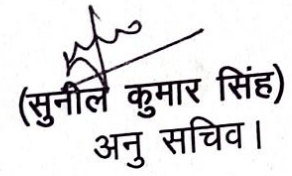 (सुनील कुमार सिंह)
अनु सचिव।